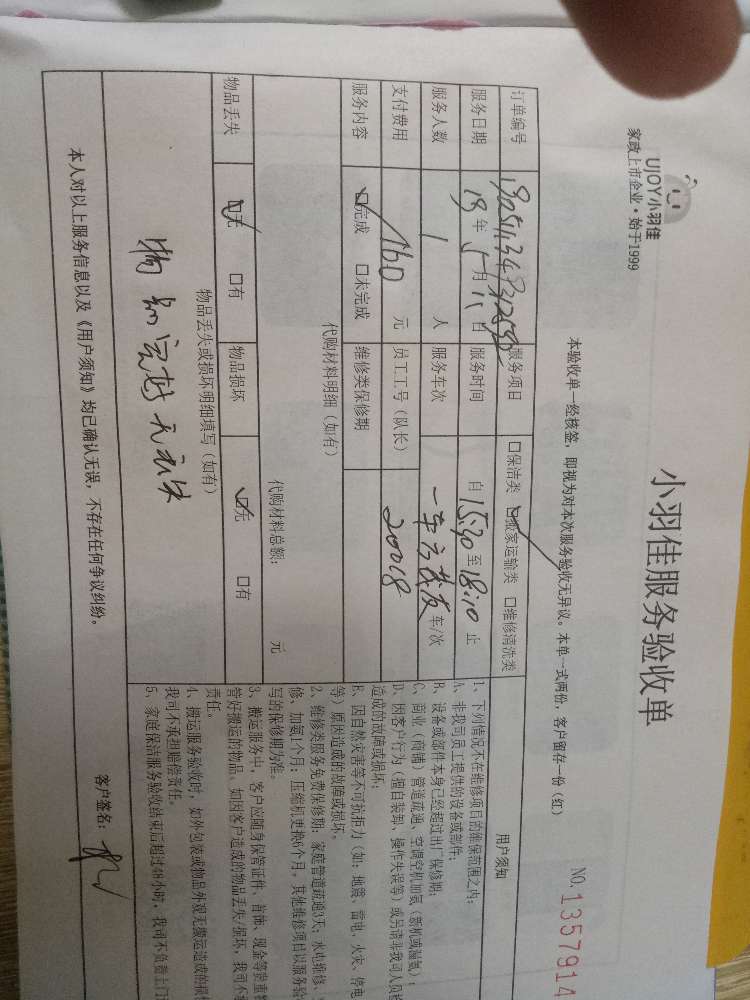 UJOY小羽佳
家政上市企业·始于1999
小羽佳服务验收单
NO. 1357914
本验收单一经核签，即视为对本次服务验收无异议。本单一式两份，客户留存一份（红）
订单编号 服务项目 □保洁类 ☑搬家运输类 □维修清洗类
服务日期 19年5月11日 服务时间 自15:30至18:10止
服务人数 1人 服务车次 车/次
支付费用 160元 员工工号（队长） 20018
服务内容 ☑完成 □未完成 维修类保修期
代购材料明细（如有）
代购材料总额： 元
物品丢失 ☑无 □有 物品损坏 ☑无 □有
物品丢失或损坏明细填写（如有）
物品完整无丢失
本人对以上服务信息以及《用户须知》均已确认无误，不存在任何争议纠纷。
客户签名：
用户须知
1、下列情况不在维修项目的维保范围之内：
A、非我司员工提供的设备或部件；
B、设备或部件本身已经超过出厂保修期；
C、商业（商铺）管道疏通、空调空机加氨（新机或漏氨）；
D、因客户行为（擅自装卸、操作失误等）或另请非我司人员
造成的故障或损坏；
E、因自然灾害等不可抗拒力（如：地震、雷电、火灾、停电
等）原因造成的故障或损坏。
2、维修类服务免费保修期：家庭管道疏通3天；水电维修、
修、加氨1个月；压缩机更换6个月。其他维修项目以服务验
写的保修期为准。
3、搬运服务中，客户应随身保管证件、首饰、现金等贵重
管好搬运的物品。如因客户造成的物品丢失/损坏，我司不
责任。
4、搬运服务验收时，如外包装或物品外观无搬运造成的损
我司不承担赔偿责任。
5、家庭保洁服务验收结束后超过48小时，我司不负责上门